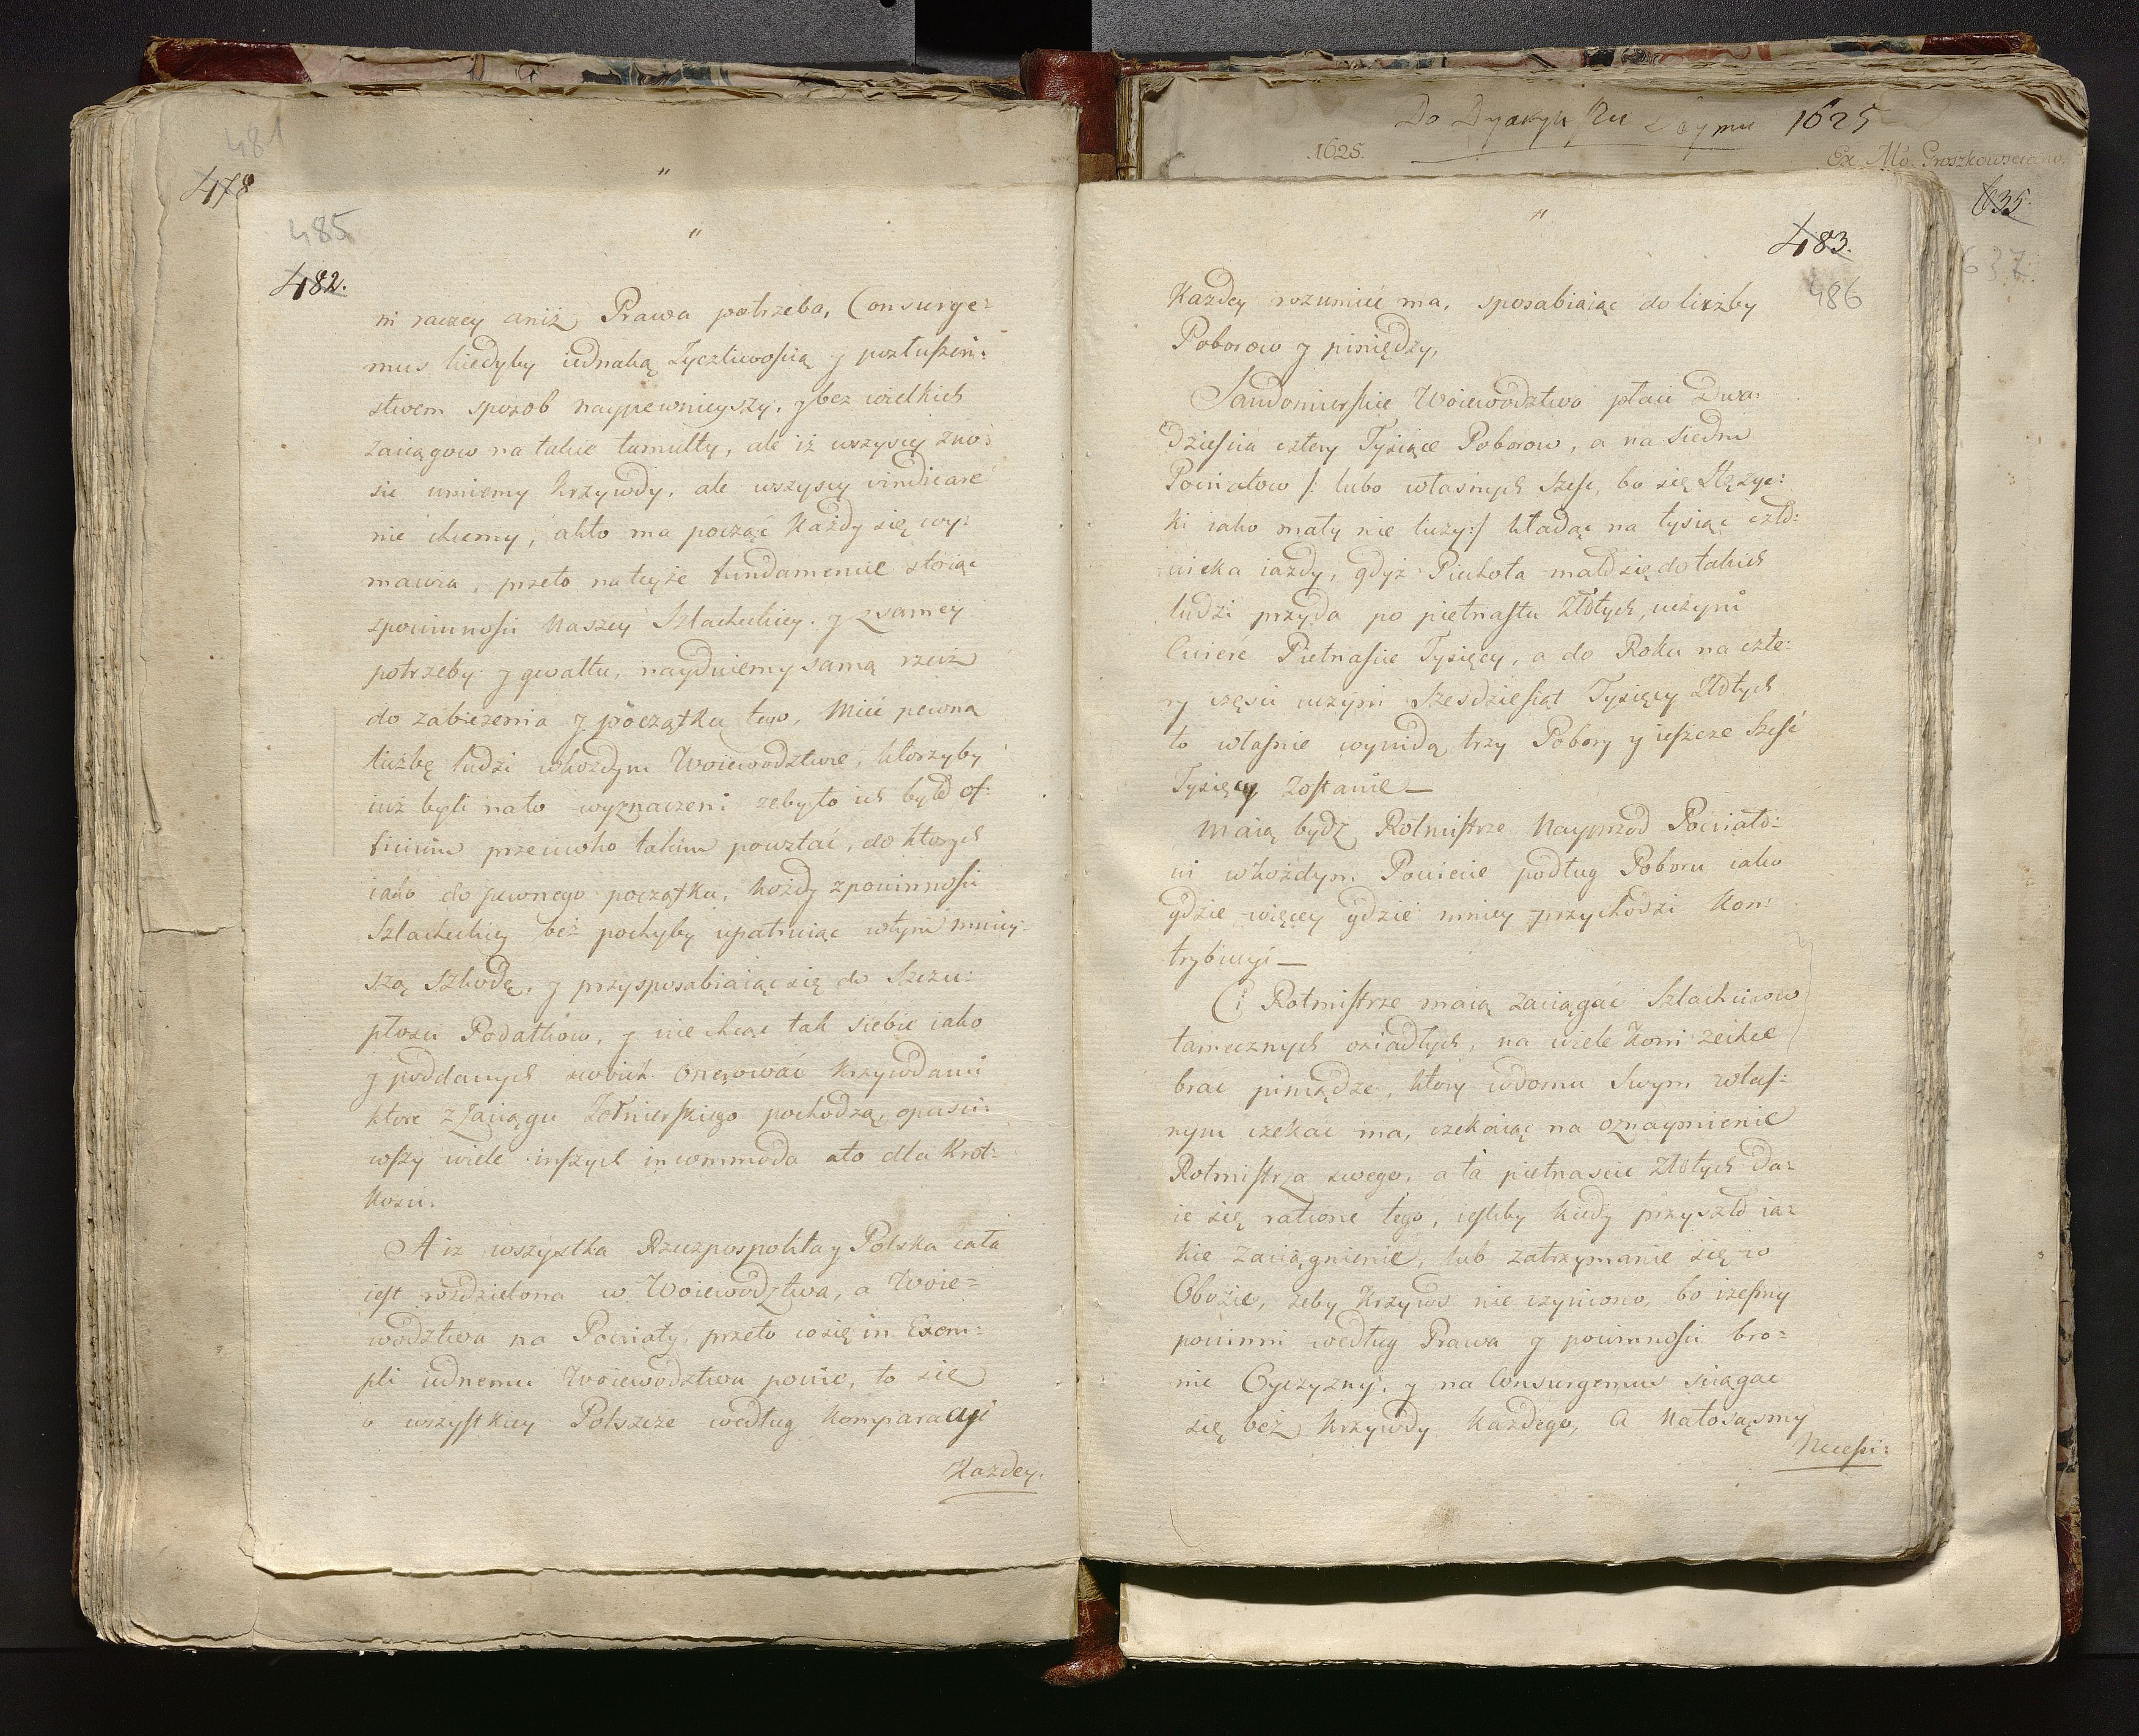 481
478
"
485
"
482.
ni raczey aniż Prawa potrzeba, Consurge=
mus kiedyby iednaką Życzliwością y posłuszeń:
stwem sposob naypewnieyszy, y bez wielkich
zaciągow na takie tumulty, ale iż wszyscy zno:
sić umiemy krzywdy, ale wszyscy vindicare
nie chcemy, akto ma począć Każdy się wy:
mawia, przeto na teyże fundamencie stoiąc
zpowinnosci Naszey Szlacheckiey y z samey
potrzeby y gwałtu, naydziemy samą rzecz
do zabieżenia y początku tego, Mieć pewną
liczbę ludzi w każdym Woiewodztwie, ktorzyby
iuż byli nato wyznaczeni żeby to ich było of:
ficium przeciwko takim powstać, do ktorych
iako do pewnego początku, każdy zpowinnosci
Szlacheckiey bez pochyby upatruiąc w tym mniey=
szą Szkodę, y przysposabiaiąc się do Szczu:
płosci Podatkow, y nie chcąc tak siebie iako
y poddanych swoich onerować krzywdami
ktore z Zaciągu Żołnierskiego pochodzą, opusci:
wszy wiele inszych incommoda ato dla Krot:
kosci.
A iż wszystka Rzeczpospolita y Polska cała
iest rozdzielona w Woiewodztwa, a Woie=
wodztwa na Powiaty, przeto co się in Exem:
pli iednemu Woiewodztwu powie, to się
o wszystkiey Polszcze według Komparacyi
Każdey.
Do Dyaryuszu Seymu 1625
1625.
Ex Mo. Groszkowsciano.
635.
637.
"
483.
486
Każdey rozumieć ma, sposabiaiąc do liczby
Poborow y pieniędzy,
Sandomierskie Woiewodztwo płaci Dwa:
dziescia cztery Tysiące Poborow, a na Siedm
Powiatow /: lubo własnych Szesc, bo się Stężyc:
ki iako mały nie liczy:/ kładąc na tysiąc czło:
wieka iazdy, gdyż Piechota mało się do takich
ludzi przyda po pietnastu Złotych, uczyni
Cwierć Pietnascie Tysięcy, a do Roku na czte:
ry częsci uczyni Szesdziesiąt Tysięcy Złotych
to własnie wynidą trzy Pobory y ieszcze Szesć
Tysięcy zostanie—
Maią bydz Rotmistrze Nayprzod Powiato:
wi w każdym Powiecie podług Poboru iako
gdzie więcey gdzie mniey przychodzi Kon:
trybucyi—
Ci Rotmistrze maią zaciągać Szlachcicow
tamecznych osiadłych, na wiele Koni zechce
brac pieniądze, ktory w domu Swym włas:
nym czekac ma, czekaiąc na oznaymienie
Rotmistrza swego, a ta pietnascie Złotych da:
ie się ratione tego, iesliby kiedy przyszło ia:
kie zaciągnienie, lub zatrzymanie się w
Obozie, żeby krzywd nie czyniono, bo iżesmy
powinni według Prawa y powinnosci bro=
nić Oyczyzny, y na Consurgemus sciągac
się bez krzywdy każdego, a natosąsmy
Necessi: